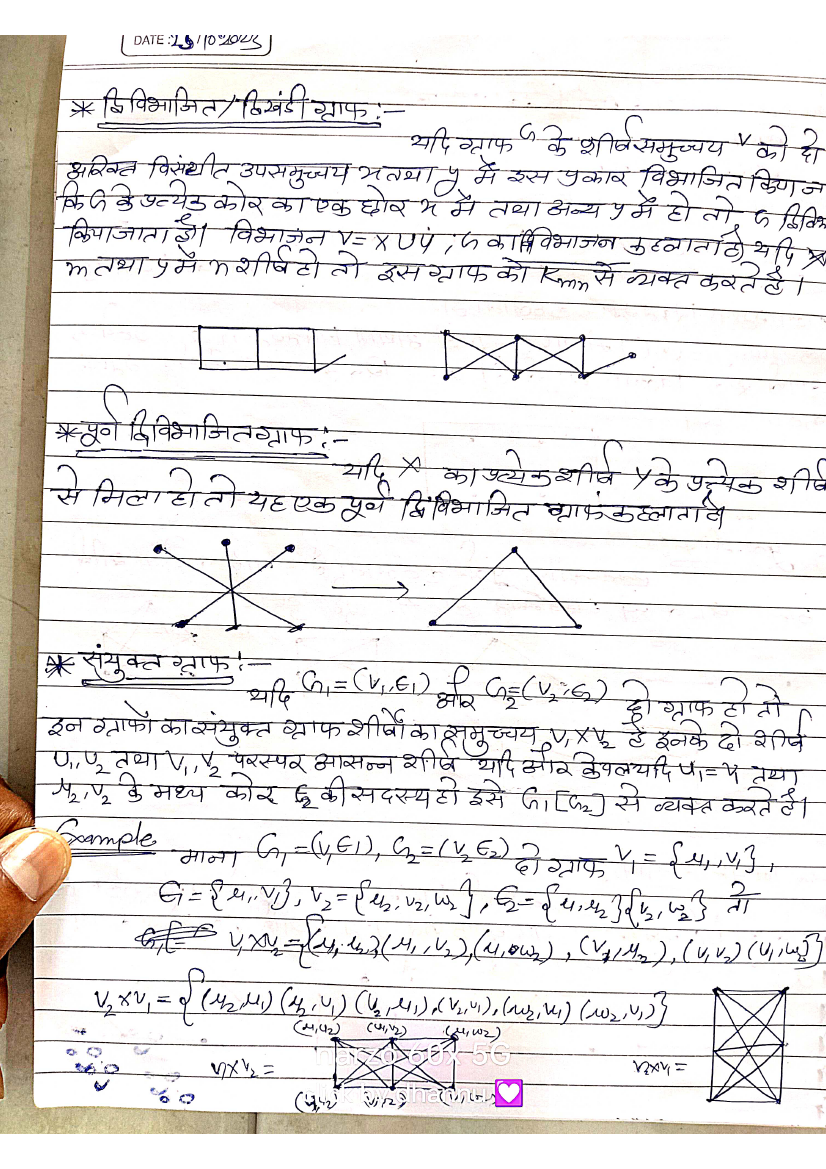 DATE: 25/10/2025
* द्विविभाजित/द्विखंडी ग्राफ :-
यदि ग्राफ G के शीर्ष समुच्चय V को दो
अरिक्त विसंघीत उपसमुच्चय x तथा y में इस प्रकार विभाजित किया ज
कि G के प्रत्येक कोर का एक छोर x में तथा अन्य y में हो तो G द्विविभ
कियाजाता है। विभाजन V= X U Y ; G का विभाजन कहलाता है, यदि X
m तथा y में n शीर्ष हो तो इस ग्राफ को Kmn से व्यक्त करते है।
* पूर्ण द्विविभाजित ग्राफ :-
यदि X का प्रत्येक शीर्ष Y के प्रत्येक शीर्ष
से मिला हो तो यह एक पूर्ण द्विविभाजित ग्राफ कहलाता है।
* संयुक्त ग्राफ :-
यदि G1 = (V1, E1) और G2 = (V2, E2) दो ग्राफ हो तो
इन ग्राफों का संयुक्त ग्राफ शीर्षों का समुच्चय V1 X V2 है इनके दो शीर्ष
U1, U2 तथा V1, V2 परस्पर आसन्न शीर्ष यदि और केवल यदि U1 = V1 तथा
u2, V2 के मध्य कोर E2 की सदस्य हो इसे G1 [G2] से व्यक्त करते है।
Example माना G1 = (V1 E1), G2 = (V2 E2) दो ग्राफ V1 = {u1, V1},
E1 = {u1, V1}, V2 = {u2, V2, w2}, E2 = {u1, u2} {V2, w2} तो
V1 X V2 = {(u1, u2) (u1, V2), (u1, w2), (V1, u2), (V1 V2) (V1, w2)}
V2 X V1 = {(u2, u1) (u2, V1) (V2, u1), (V2, V1), (w2, u1) (w2, V1)}
(u1, u2) (u1, V2) (u1, w2)
V1 X V2 =
V2 X V1 =
narzo 60x 5G